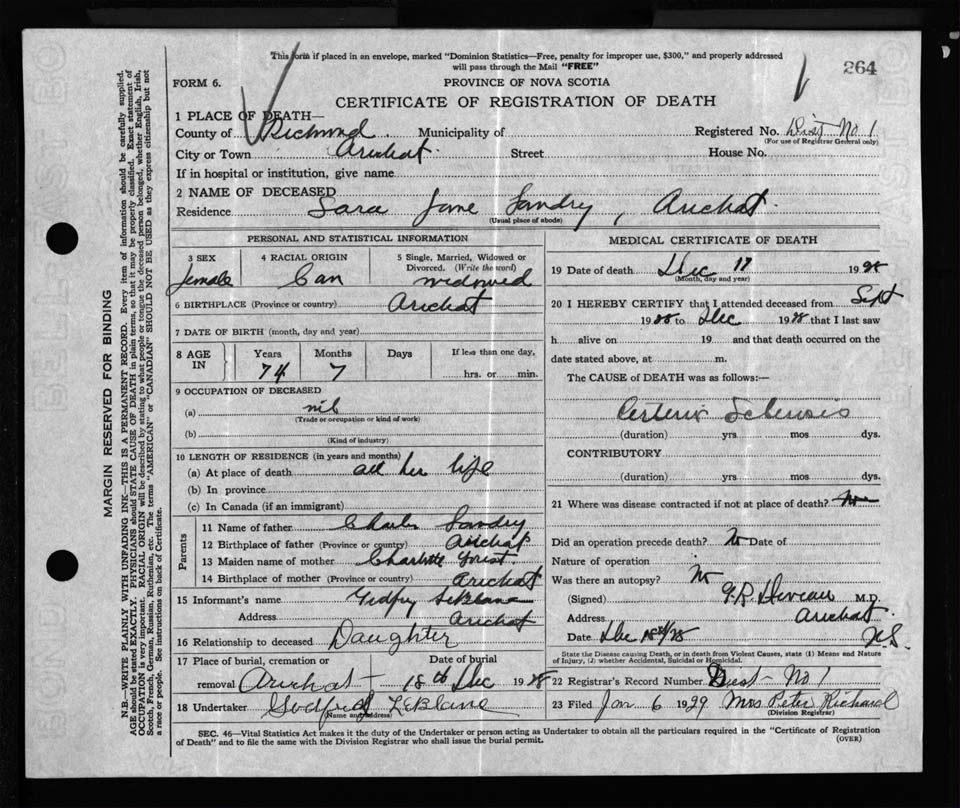 This form if placed in an envelope, marked "Dominion Statistics—Free, penalty for improper use, $300," and properly addressed
will pass through the Mail "FREE"
264
FORM 6.
PROVINCE OF NOVA SCOTIA
CERTIFICATE OF REGISTRATION OF DEATH
1 PLACE OF DEATH—
County of Richmond Municipality of Registered No. Dist No 1
(For use of Registrar General only)
City or Town Arichat Street House No.
If in hospital or institution, give name
2 NAME OF DECEASED
Residence Sara Jane Landry, Arichat.
(Usual place of abode)
PERSONAL AND STATISTICAL INFORMATION
3 SEX 4 RACIAL ORIGIN 5 Single, Married, Widowed or
Divorced. (Write the word)
female Can widowed
6 BIRTHPLACE (Province or country) Arichat
7 DATE OF BIRTH (month, day and year)
8 AGE IN Years Months Days If less than one day,
74 7 hrs. or min.
9 OCCUPATION OF DECEASED
(a) nil
(Trade or occupation or kind of work)
(b)
(Kind of industry)
10 LENGTH OF RESIDENCE (in years and months)
(a) At place of death all her life
(b) In province
(c) In Canada (if an immigrant)
Parents
11 Name of father Charles Landry
12 Birthplace of father (Province or country) Arichat
13 Maiden name of mother Charlotte Forest
14 Birthplace of mother (Province or country) Arichat
15 Informant's name Godfrey LeBlanc
Address Arichat
16 Relationship to deceased Daughter
17 Place of burial, cremation or Date of burial
removal Arichat 18th Dec 1928
18 Undertaker Godfrey LeBlanc
(Name and address)
MEDICAL CERTIFICATE OF DEATH
19 Date of death Dec 17 1928
(Month, day and year)
20 I HEREBY CERTIFY that I attended deceased from Sept
1928 to Dec 1928 that I last saw
h alive on 19 and that death occurred on the
date stated above, at m.
The CAUSE of DEATH was as follows:—
(duration) yrs mos dys.
CONTRIBUTORY
(duration) yrs mos dys.
21 Where was disease contracted if not at place of death?
Did an operation precede death? No Date of
Nature of operation
Was there an autopsy? No
(Signed) G.R. Deveau M.D.
Address Arichat.
Date Dec 18th/28 N.S.
State the Disease causing Death, or in death from Violent Causes, state (1) Means and Nature
of Injury, (2) whether Accidental, Suicidal or Homicidal.
22 Registrar's Record Number Dist No 1
23 Filed Jan 6 1929 Mrs Peter Richard
(Division Registrar)
SEC. 46—Vital Statistics Act makes it the duty of the Undertaker or person acting as Undertaker to obtain all the particulars required in the "Certificate of Registration
of Death" and to file the same with the Division Registrar who shall issue the burial permit.
(OVER)
MARGIN RESERVED FOR BINDING
N.B.—WRITE PLAINLY WITH UNFADING INK—THIS IS A PERMANENT RECORD. Every item of information should be carefully supplied.
AGE should be stated EXACTLY. PHYSICIANS should STATE CAUSE OF DEATH in plain terms, so that it may be properly classified. Exact statement of
OCCUPATION is very important. RACIAL ORIGIN will be described by stating to what people or tongue the deceased person belonged, whether English, Irish,
Scotch, French, German, Russian, Ruthenian, etc. The terms "AMERICAN" or "CANADIAN" SHOULD NOT BE USED as they express citizenship but not
a race or people. See instructions on back of Certificate.